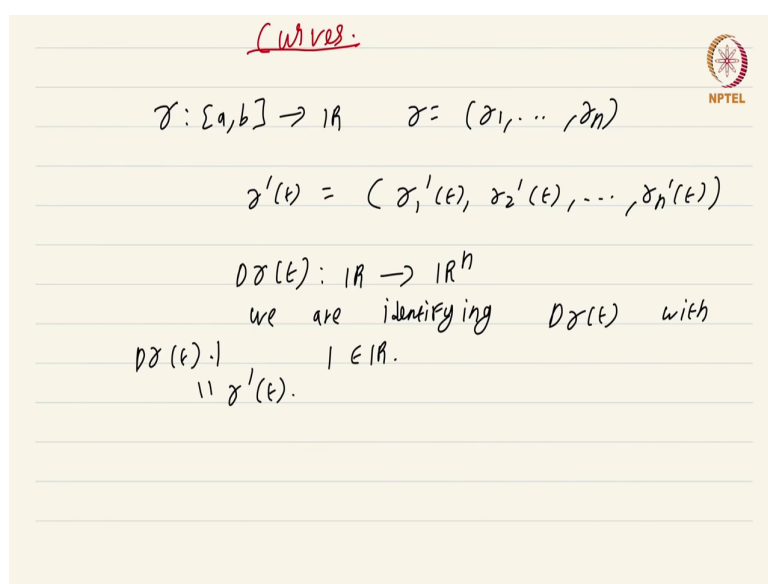 Curves.
NPTEL
γ : [a,b] → ℝ γ = (γ1, ... , γn)
γ'(t) = (γ1'(t), γ2'(t), ... , γn'(t))
Dγ(t) : ℝ → ℝⁿ
we are identifying Dγ(t) with
Dγ(t)·1 1 ∈ ℝ.
|| γ'(t).